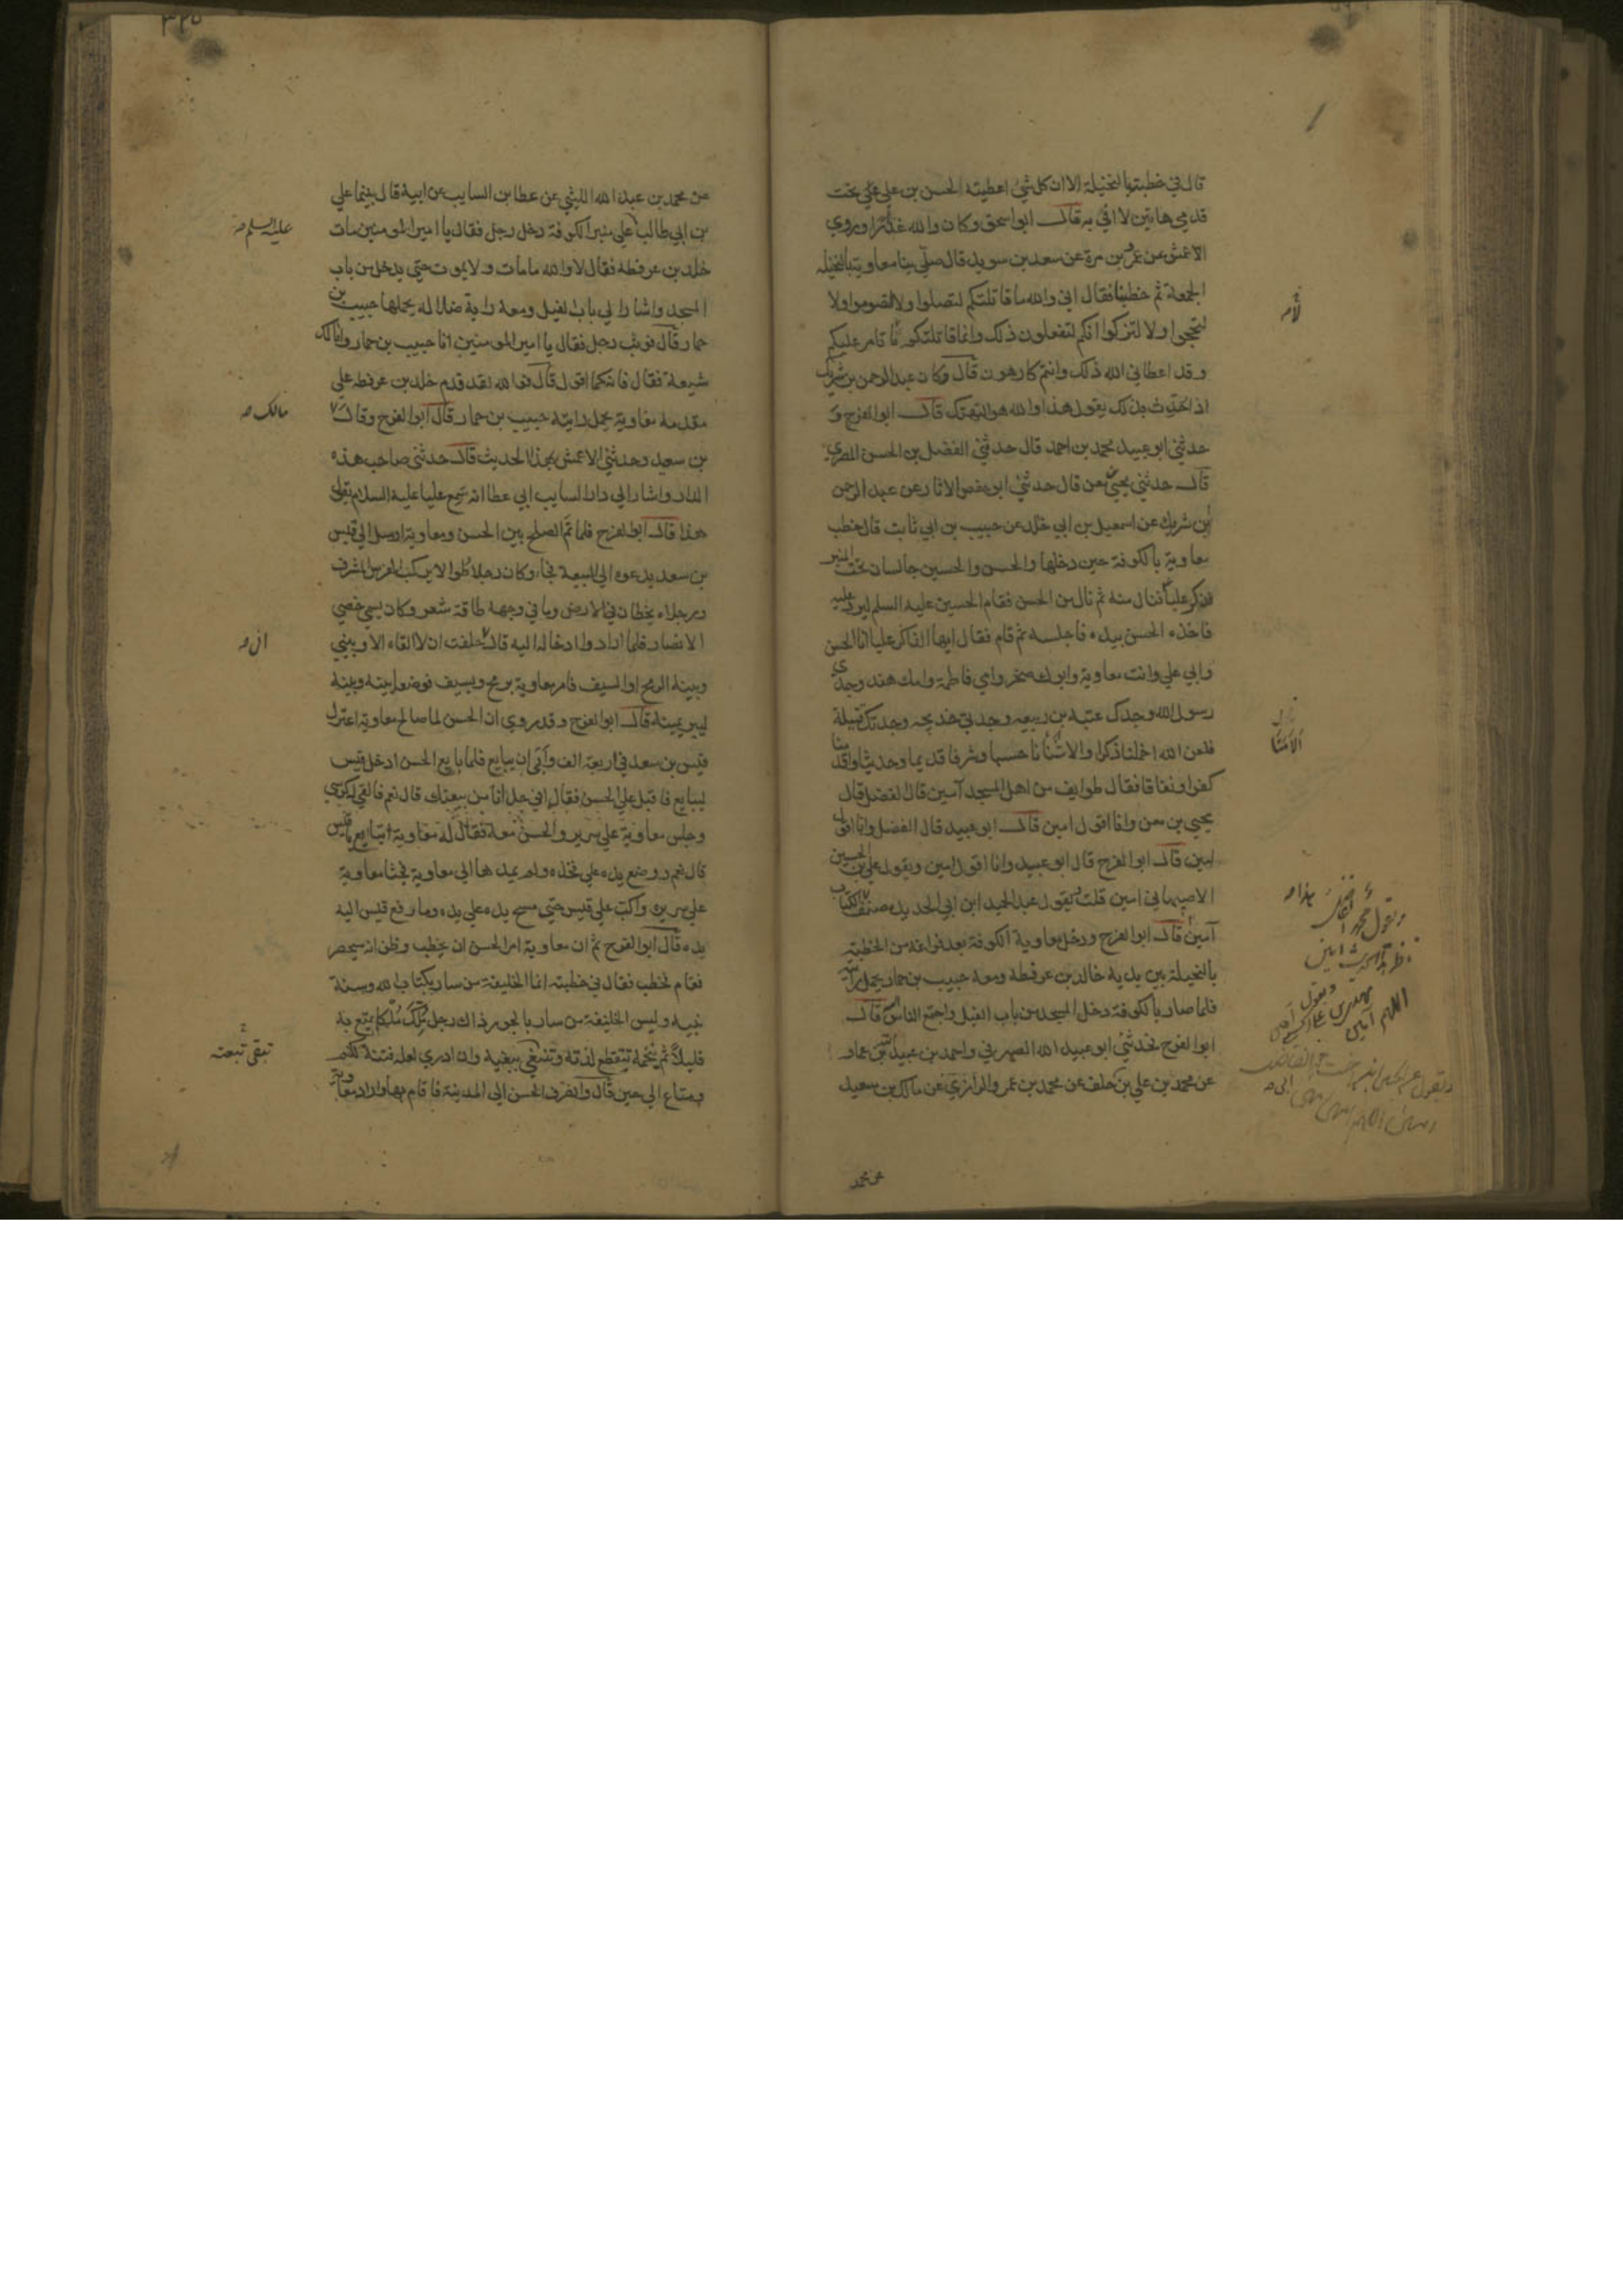 قال في خطبته بالنخيلة الا ان كل شي اعطيته الحسن بن علي علي تحت
قدمي هاتين لا افي به قال ابو اسحق وكان والله غدارا وروي
الاعمش عن عمرو بن مرة عن سعد بن سويد قال صلي بنا معاوية بالنخيله
الجمعة ثم خطبنا فقال اني والله ما قاتلتكم لتصلوا ولا لتصوموا ولا
لتحجوا ولا لتزكوا انكم لتفعلون ذلك وانما قاتلتكم لاتامر عليكم
وقد اعطاني الله ذلك وانتم كارهون قال وكان عبد الرحمن بن شريك
اذا حدث بذلك يقول هذا والله هو التهتك قال ابو الفرج و
حدثني ابو عبيد محمد بن احمد قال حدثني الفضل بن الحسن المصري
قال حدثني يحيي بن معن قال حدثني ابو حفص الاثار عن عبد الرحمن
بن شريك عن اسمعيل بن ابي خلد عن حبيب بن ابي ثابت قال خطب
معاوية بالكوفة حين دخلها والحسن والحسين جالسان تحت المنبر
فذكر عليا فنال منه ثم نال من الحسن فقام الحسين عليه السلم ليرد عليه
فاخذه الحسن بيده فاجلسه ثم قام فقال ايها الذاكر عليا انا الحسن
وابي علي وانت معاوية وابوك صخر وامي فاطمة وامك هند وجدي
رسول الله وجدك عتبه بن ربيعه وجدتي خديجه وجدتك قتيلة
فلعن الله اخملنا ذكرا والامنا حسبا وشرنا قديما وحديثا واقدمنا
كفرا ونفاقا فقال طوايف من اهل المسجد آمين قال الفضل قال
يحيي بن معن وانا اقول امين قال ابو عبيد قال الفضل وانا اقول
امين قال ابو الفرج قال ابو عبيد وانا اقول امين ويقول علي بن الحسين
الاصبهاني امين قلت ويقول عبد الحميد ابن ابي الحديد مصنف الكتاب
آمين قال ابو الفرج ودخل معاوية الكوفة بعد فراغه من الخطبته
بالنخيلة بين يديه خالد بن عرفطه ومعه حبيب بن حمار يحمل رايته
فلما صار بالكوفة دخل المسجد من باب الفيل واجتمع الناس قال
ابو الفرج فحدثني ابو عبيد الله الصيرفي واحمد بن عبيد الله بن عمار
عن محمد بن علي بن خلف عن محمد بن عمرو الرازي عن مالك بن سعيد
عن محمد
عن محمد بن عبد الله الليثي عن عطا بن السايب عن ابيه قال بينما علي
بن ابي طالب علي منبر الكوفة دخل رجل فقال يا امير المومنين مات
خلد بن عرفطه فقال لا والله ما مات ولا يموت حتي يدخل من باب
المسجد واشار الي باب الفيل ومعه راية ضلالة يحملها حبيب بن
حمار قال فوثب رجل فقال يا امير المومنين انا حبيب بن حمار وانا لك
شيعة فقال فانه كما اقول قال فوالله لقد قدم خلد بن عرفطه علي
مقدمة معاوية يحمل رايته حبيب بن حمار قال ابو الفرج وقال
بن سعيد وحدثني الاعمش بهذا الحديث قال حدثني صاحب هذه
الدار واشار الي دار السايب ابي عطا انه سمع عليا عليه السلام يقول
هذا قال ابو الفرج فلما تم الصلح بين الحسن ومعاوية ارسل الي قيس
بن سعد يدعوه الي البيعة فجاء وكان رجلا طوالا يركب الفرس المشرف
ورجلاه يخطان في الارض وما في وجهه طاقة شعر وكان يسمي خصي
الانصار فلما ارادوا ادخاله اليه قال حلفت ان لا القاه الا وبيني
وبينه الرمح او السيف فامر معاوية برمح وبسيف فوضع بينه وبينه
ليبر يمينه قال ابو الفرج وقد روي ان الحسن لما صالح معاوية اعتزل
قيس بن سعد في اربعة الف وابي ان يبايع فلما بايع الحسن ادخل قيس
ليبايع فاقبل علي الحسن فقال افي حل انا من بيعتك قال نعم فالقي له كرسي
وجلس معاوية علي سرير والحسن معه فقال له معاوية اتبايع يا قيس
قال نعم ووضع يده علي فخذه ولم يمدها الي معاوية فجثا معاوية
علي سريره واكب علي قيس حتي مسح يده علي يده وما رفع قيس اليه
يده قال ابو الفرج ثم ان معاوية امر الحسن ان يخطب وظن انه سيحصر
فقام فخطب فقال في خطبته انما الخليفة من سار بكتاب الله وسنة
نبيه وليس الخليفة من سار بالجور ذاك رجل ملك ملكا يمتع به
قليلا ثم تنقطع لذته وان ادري لعله فتنة لكم
ومتاع الي حين قال وانصرف الحسن الي المدينة فاقام بها واراد معاوية
عليه السلم
مالك
ان
تبقي تبعته